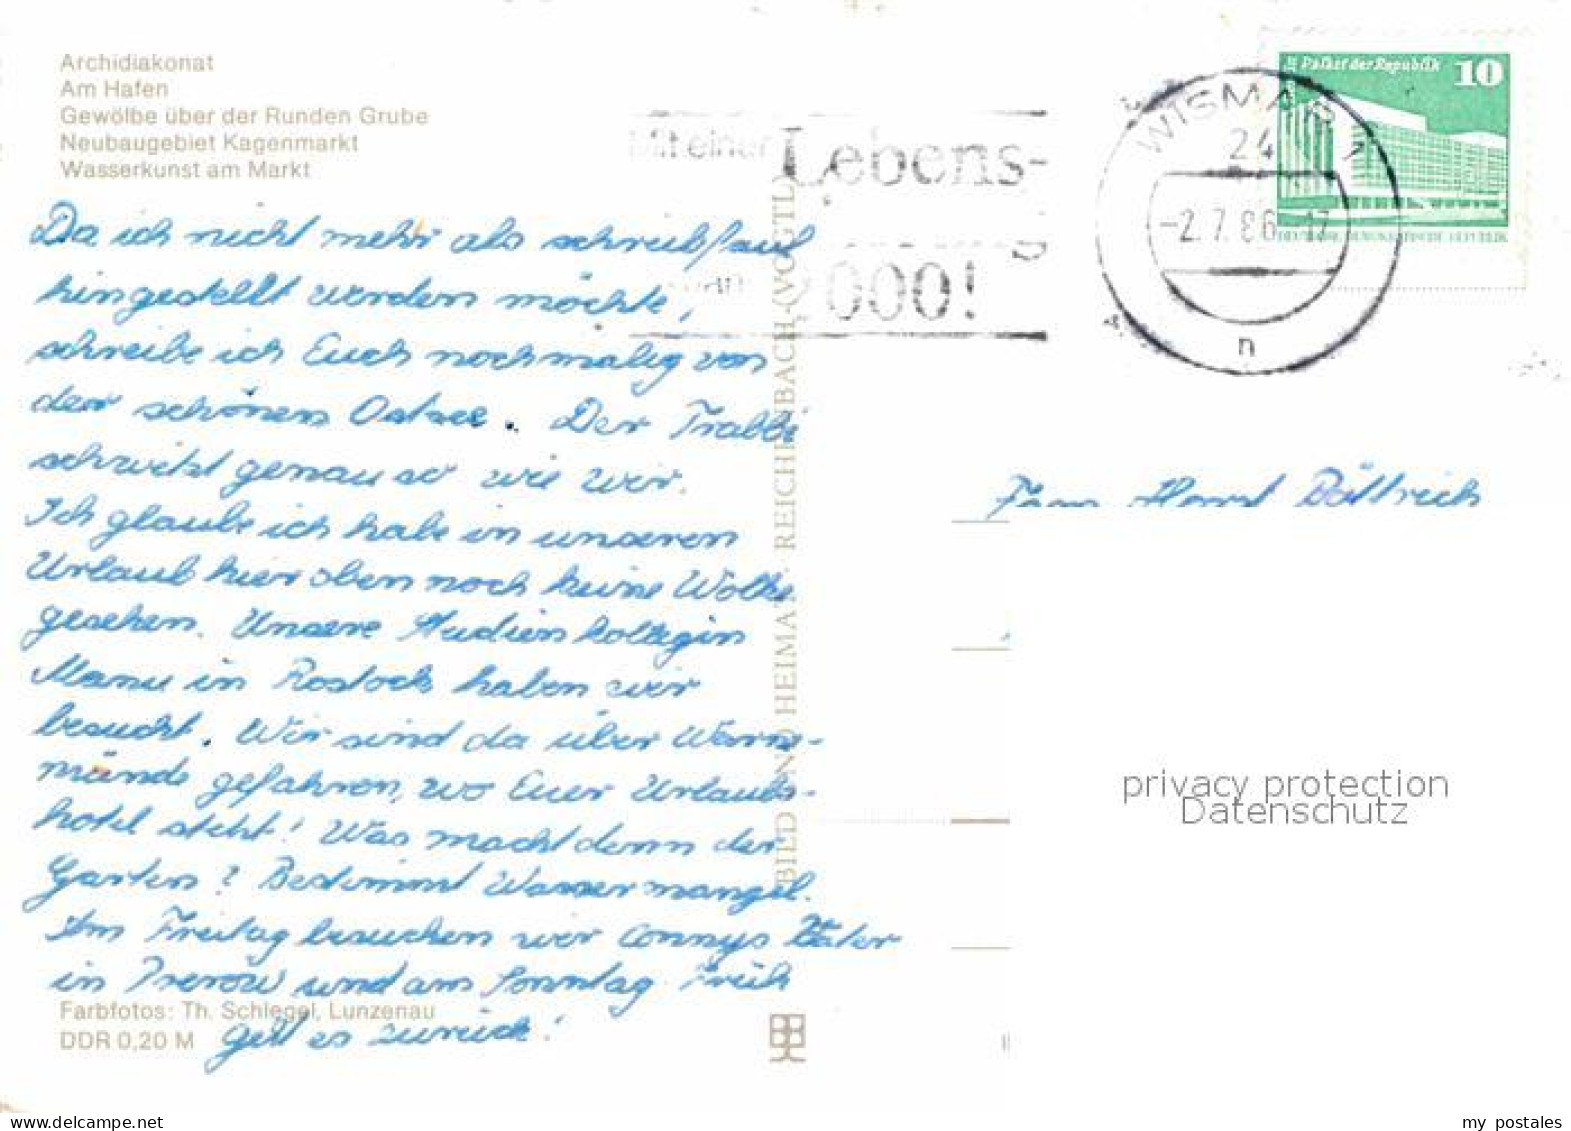 Archidiakonat
Am Hafen
Gewölbe über der Runden Grube
Neubaugebiet Kagenmarkt
Wasserkunst am Markt
Da ich nicht mehr als schreibfaul
hingestellt werden möchte,
schreibe ich Euch nochmalig von
der schönen Ostsee. Der Trabbi
schwitzt genau so wie wir.
Ich glaube ich habe in unseren
Urlaub hier oben noch keine Wolke
gesehen. Unsere Studienkollegin
Manu in Rostock haben wir
besucht. Wir sind da über Warne-
münde gefahren, wo Euer Urlaubs-
hotel steht! Was macht denn der
Garten? Bestimmt Wassermangel.
Am Freitag besuchen wir Connys Väter
in Prerow und am Sonntag Früh
geht es zurück!
Farbfotos: Th. Schlegel, Lunzenau
DDR 0,20 M
BILD UND HEIMAT · REICHENBACH (VOGTL)
Mit einer Lebens-
2000!
WISMAR 1
24
-2.7.86-17
n
Palast der Republik 10
DEUTSCHE DEMOKRATISCHE REPUBLIK
Fam. Horst Böttrich
privacy protection
Datenschutz
www.delcampe.net
my_postales